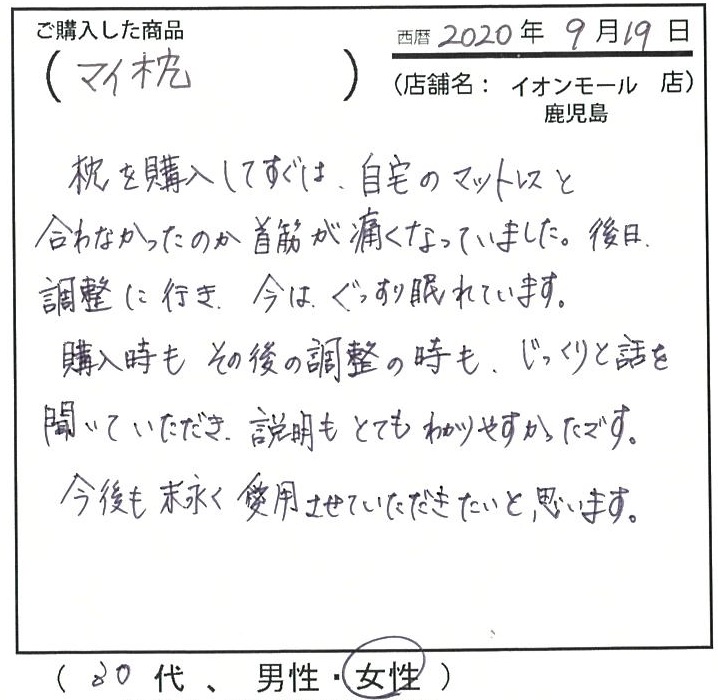 ご購入した商品
(マイ枕)
西暦 2020年 9月19日
(店舗名: イオンモール 店)
鹿児島
枕を購入してすぐは、自宅のマットレスと
合わなかったのか首筋が痛くなっていました。後日、
調整に行き、今は、ぐっすり眠れています。
購入時もその後の調整の時も、じっくりと話を
聞いていただき、説明もとてもわかりやすかったです。
今後も末永く愛用させていただきたいと思います。
(30代、男性・女性)